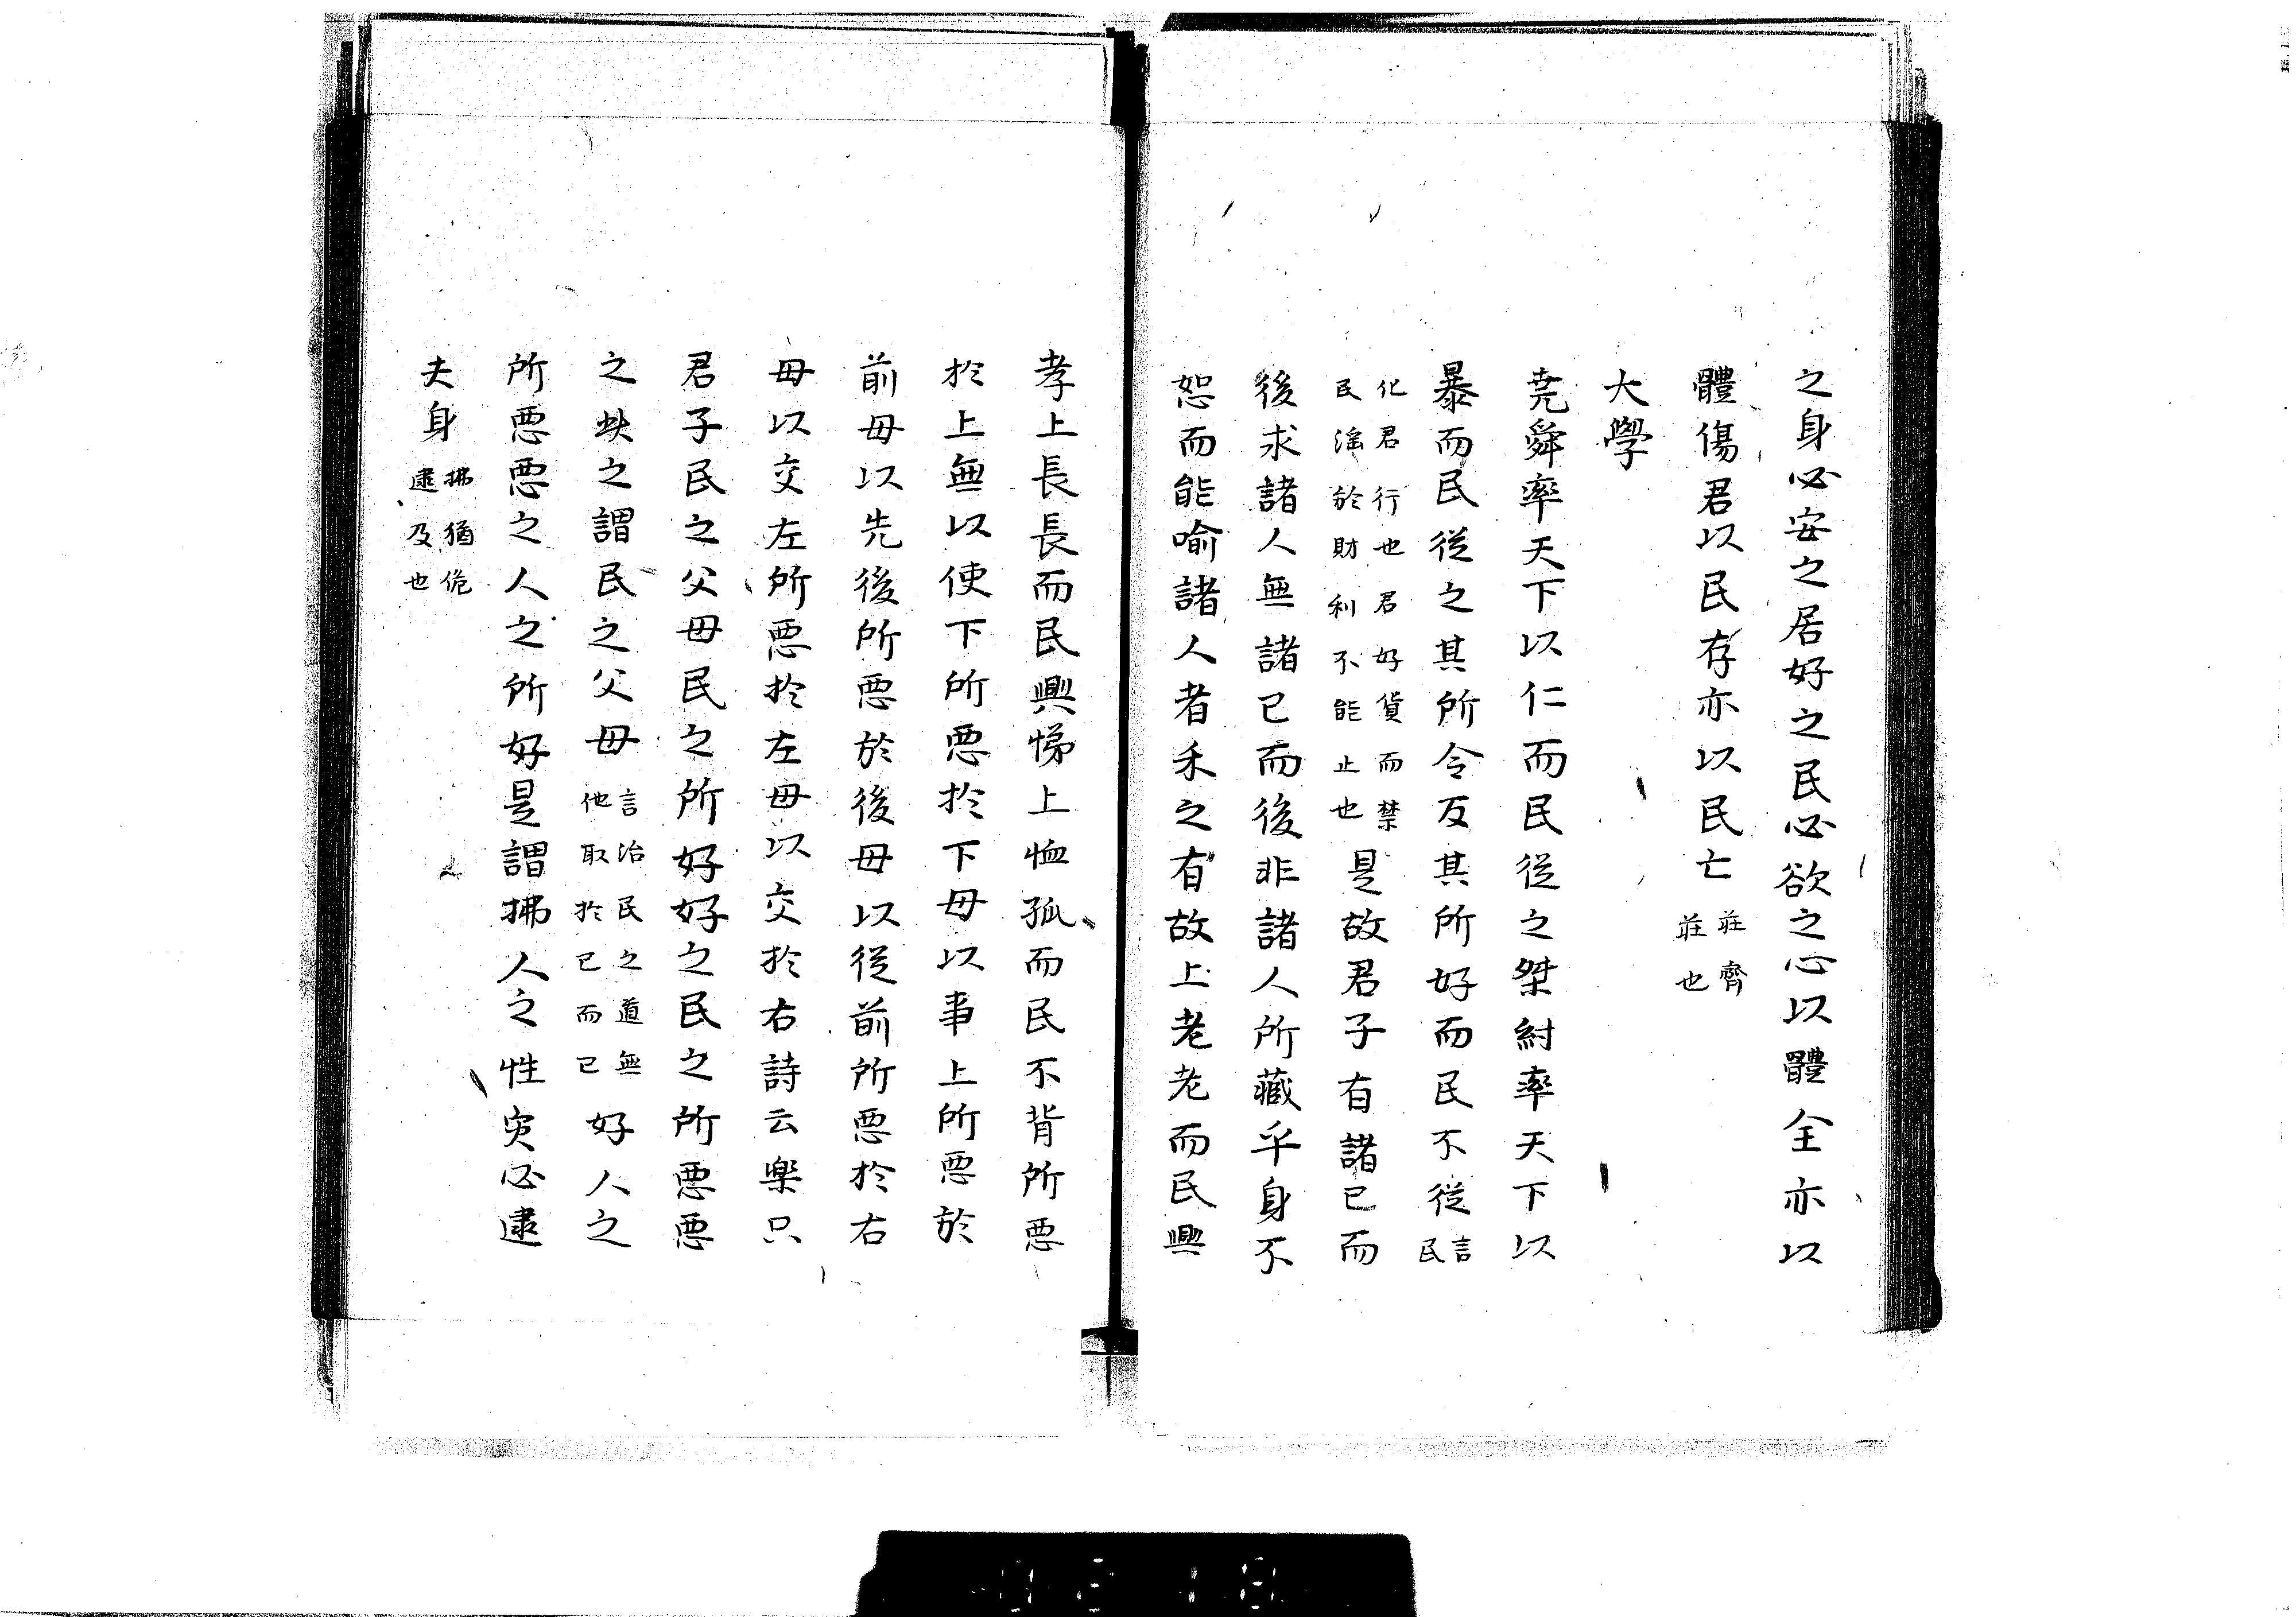 之身必安之居好之民必欲之心以體全亦以
體傷君以民存亦以民亡莊齊莊也
大學
堯舜率天下以仁而民從之桀紂率天下以
暴而民從之其所令反其所好而民不從言民
化君行也君好貨而禁民淫於財利不能止也是故君子有諸已而
後求諸人無諸已而後非諸人所藏乎身不
恕而能喻諸人者未之有故上老老而民興
孝上長長而民興悌上恤孤而民不背所惡
於上無以使下所惡於下毋以事上所惡於
前毋以先後所惡於後毋以從前所惡於右
毋以交左所惡於左毋以交於右詩云樂只
君子民之父母民之所好好之民之所惡惡
之此之謂民之父母言治民之道無他取於已而已好人之
所惡惡之人之所好是謂拂人之性灾必逮
夫身拂猶佹逮及也